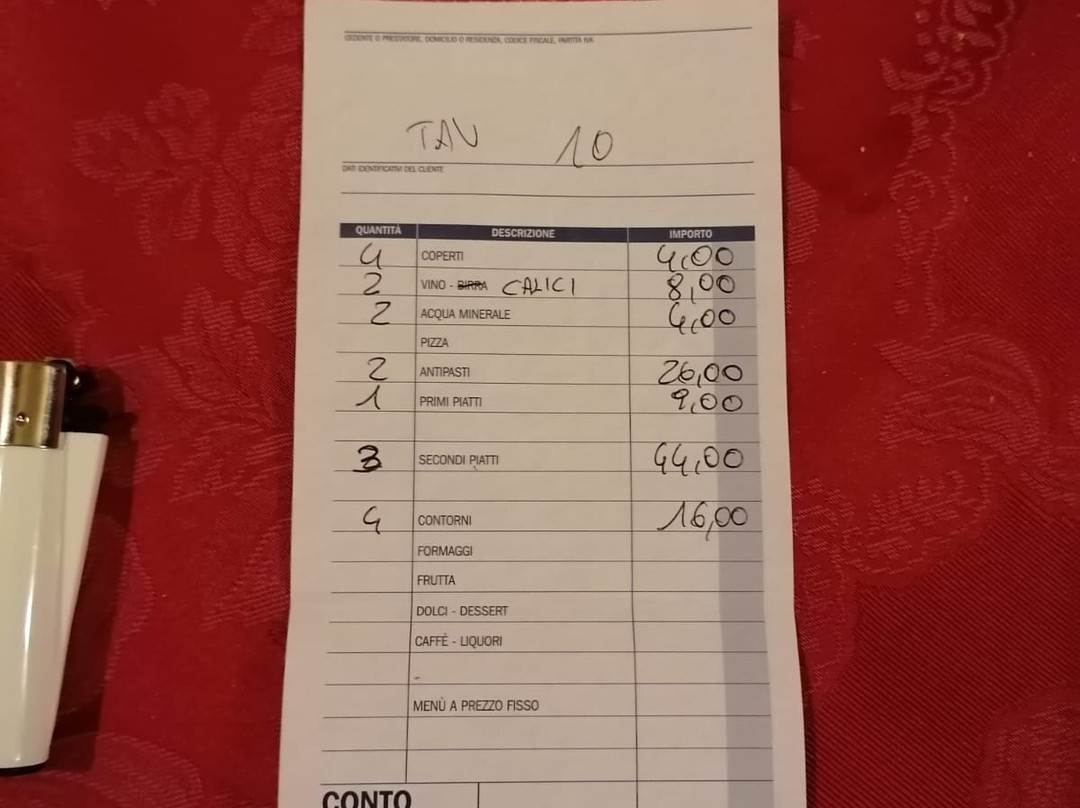 CEDENTE O PRESTATORE, DOMICILIO O RESIDENZA, CODICE FISCALE, PARTITA IVA
TAV 10
DATI IDENTIFICATIVI DEL CLIENTE
QUANTITÀ DESCRIZIONE IMPORTO
4 COPERTI 4,00
2 VINO - BIRRA CALICI 8,00
2 ACQUA MINERALE 4,00
PIZZA
2 ANTIPASTI 26,00
1 PRIMI PIATTI 9,00
3 SECONDI PIATTI 44,00
4 CONTORNI 16,00
FORMAGGI
FRUTTA
DOLCI - DESSERT
CAFFÈ - LIQUORI
MENÙ A PREZZO FISSO
CONTO